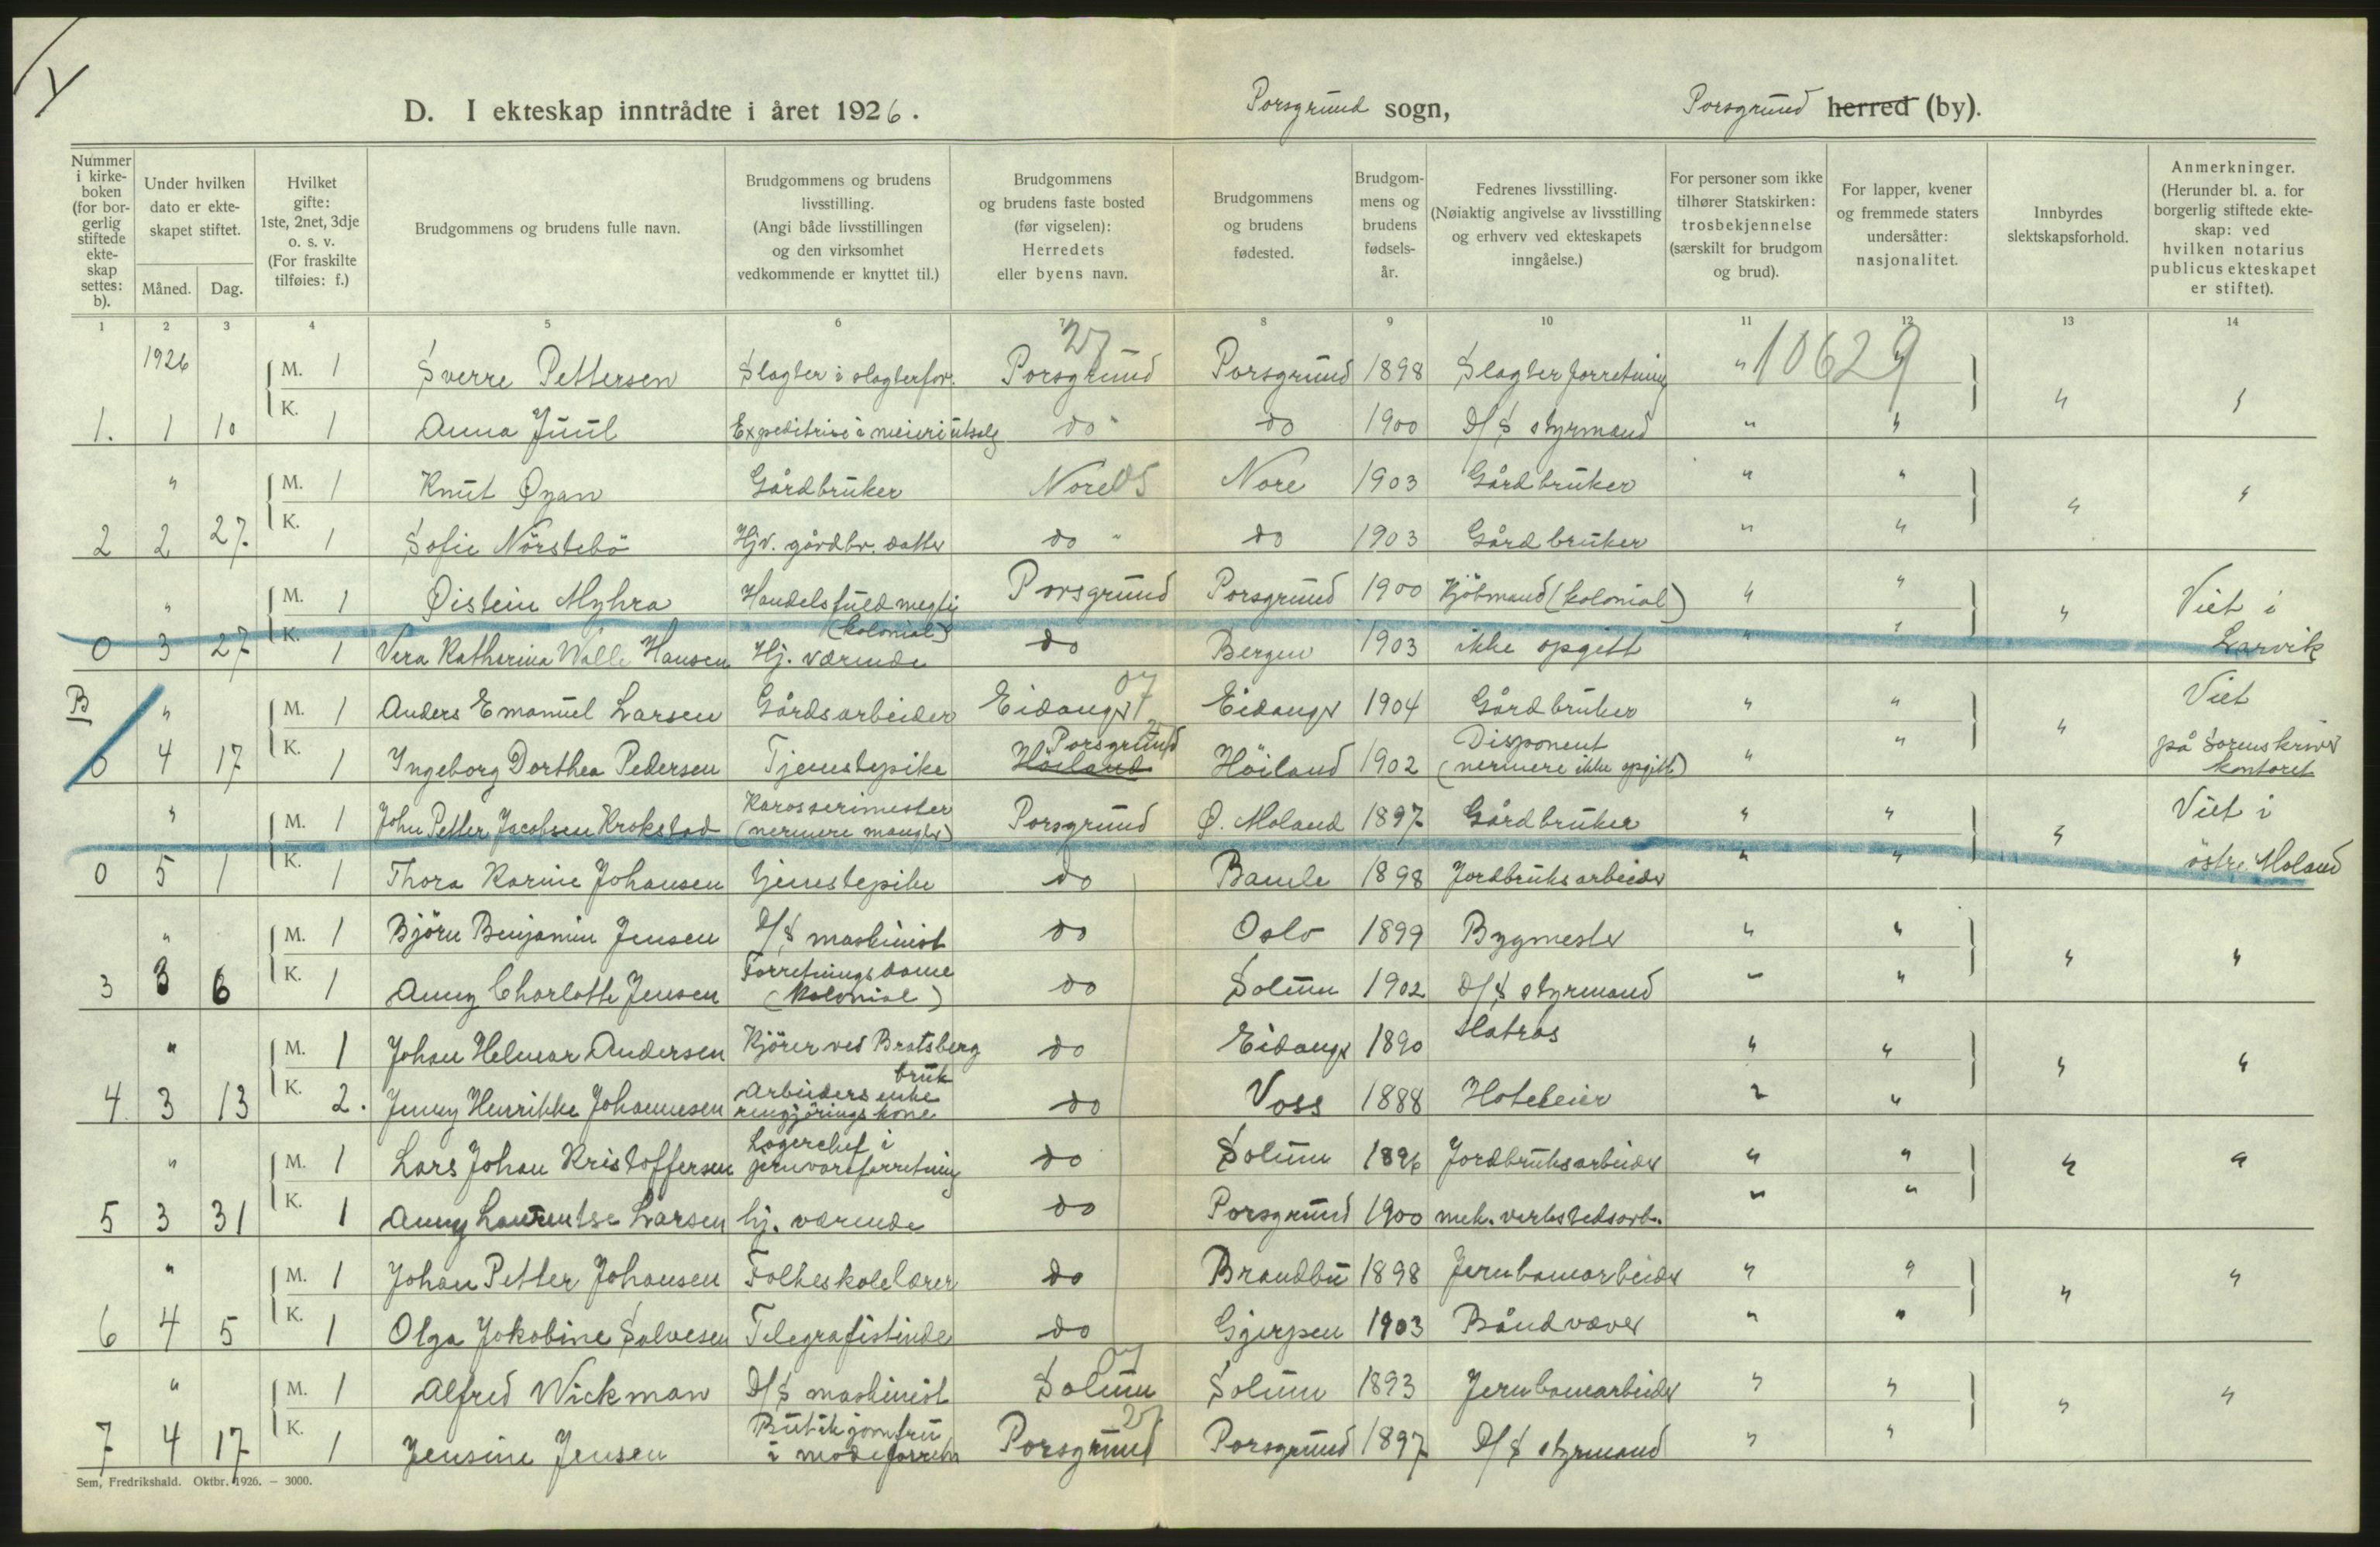 D. I ekteskap inntrådte i året 1926. Porsgrund sogn, Porsgrund herred (by).
Nummer i kirkeboken (for borgerlig stiftede ekteskap settes: b).
Under hvilken dato er ekteskapet stiftet.
Måned. Dag.
Hvilket gifte: 1ste, 2net, 3dje o. s. v. (For fraskilte tilføies: f.)
Brudgommens og brudens fulle navn.
Brudgommens og brudens livsstilling. (Angi både livsstillingen og den virksomhet vedkommende er knyttet til.)
Brudgommens og brudens faste bosted (før vigselen): Herredets eller byens navn.
Brudgommens og brudens fødested.
Brudgommens og brudens fødselsår.
Fedrenes livsstilling. (Nøiaktig angivelse av livsstilling og erhverv ved ekteskapets inngåelse.)
For personer som ikke tilhører Statskirken: trosbekjennelse (særskilt for brudgom og brud).
For lapper, kvener og fremmede staters undersåtter: nasjonalitet.
Innbyrdes slektskapsforhold.
Anmerkninger. (Herunder bl. a. for borgerlig stiftede ekteskap: ved hvilken notarius publicus ekteskapet er stiftet).
1 2 3 4 5 6 7 8 9 10 11 12 13 14
1926 M. 1 Sverre Pettersen Slagter i slagterfor. Porsgrund 27 Porsgrund 1898 Slagterforretning " 10629
1. 1 10 K. 1 Anna Juul Expeditrise i meieriutsalg do " do 1900 D/S styrmand " " " "
" M. 1 Knut Øyan Gårdbruker Nore 05 Nore 1903 Gårdbruker " "
2 2 27. K. 1 Sofie Nörstebö Hjv. gårdbr. datter do " do 1903 Gårdbruker " " " "
" M. 1 Øistein Myhra Handelsfuldmegtig (kolonial) Porsgrund Porsgrund 1900 Kjöbmand (kolonial) " " " Viet i
0 3 27 K. 1 Vera Katharina Walle Hansen Hj. værende do Bergen 1903 ikke opgitt " " Larvik
B " M. 1 Anders Emanuel Larsen Gårdsarbeider Eidanger 07 Eidanger 1904 Gårdbruker " " Viet
0 4 17 K. 1 Ingeborg Dorthea Pedersen Tjenestepike Höiland Porsgrund Höiland 1902 Disponent (nermere ikke opgitt) " " " på Sorenskriver kontoret
" M. 1 John Petter Jacobsen Krokstad Karosserimester (nermere mangler) Porsgrund Ø. Moland 1897 Gårdbruker " " " Viet i
0 5 1 K. 1 Thora Karine Johansen tjenestepike do Bamle 1898 Jordbruksarbeider " " östre Moland
" M. 1 Björn Benjamin Jensen D/S maskinist do Oslo 1899 Bygmester " "
3 3 6 K. 1 Anny Charlotte Jensen Forretningsdame (kolonial) do Solum 1902 D/S styrmand " " " "
" M. 1 Johan Helmar Andersen Kjörer ved Bratsberg bruk do Eidanger 1890 Matros " "
4. 3 13 K. 2. Jenny Henrikke Johannesen Arbeiders enke rengjöringskone do Voss 1888 Hoteleier " " " "
" M. 1 Lars Johan Kristoffersen Lagerchef i jernvareforretning do Solum 1896 Jordbruksarbeider " " " "
5 3 31 K. 1 Anny Laurentse Larsen hj. værende do Porsgrund 1900 mek. verkstedsarb. " "
" M. 1 Johan Petter Johansen Folkeskolelærer do Brandbu 1898 Jernbanearbeider " " " "
6 4 5 K. 1 Olga Jokobine Salvesen Telegrafistinde do Gjerpen 1903 Båndvæver " "
" M. 1 Alfred Wickman D/S maskinist Solum 07 Solum 1893 Jernbanearbeider " " " "
7 4 17 K. 1 Jensine Jensen Butikjomfru i modeforretn Porsgrund 27 Porsgrund 1897 D/S styrmand " "
Sem, Fredrikshald. Oktbr. 1926. — 3000.